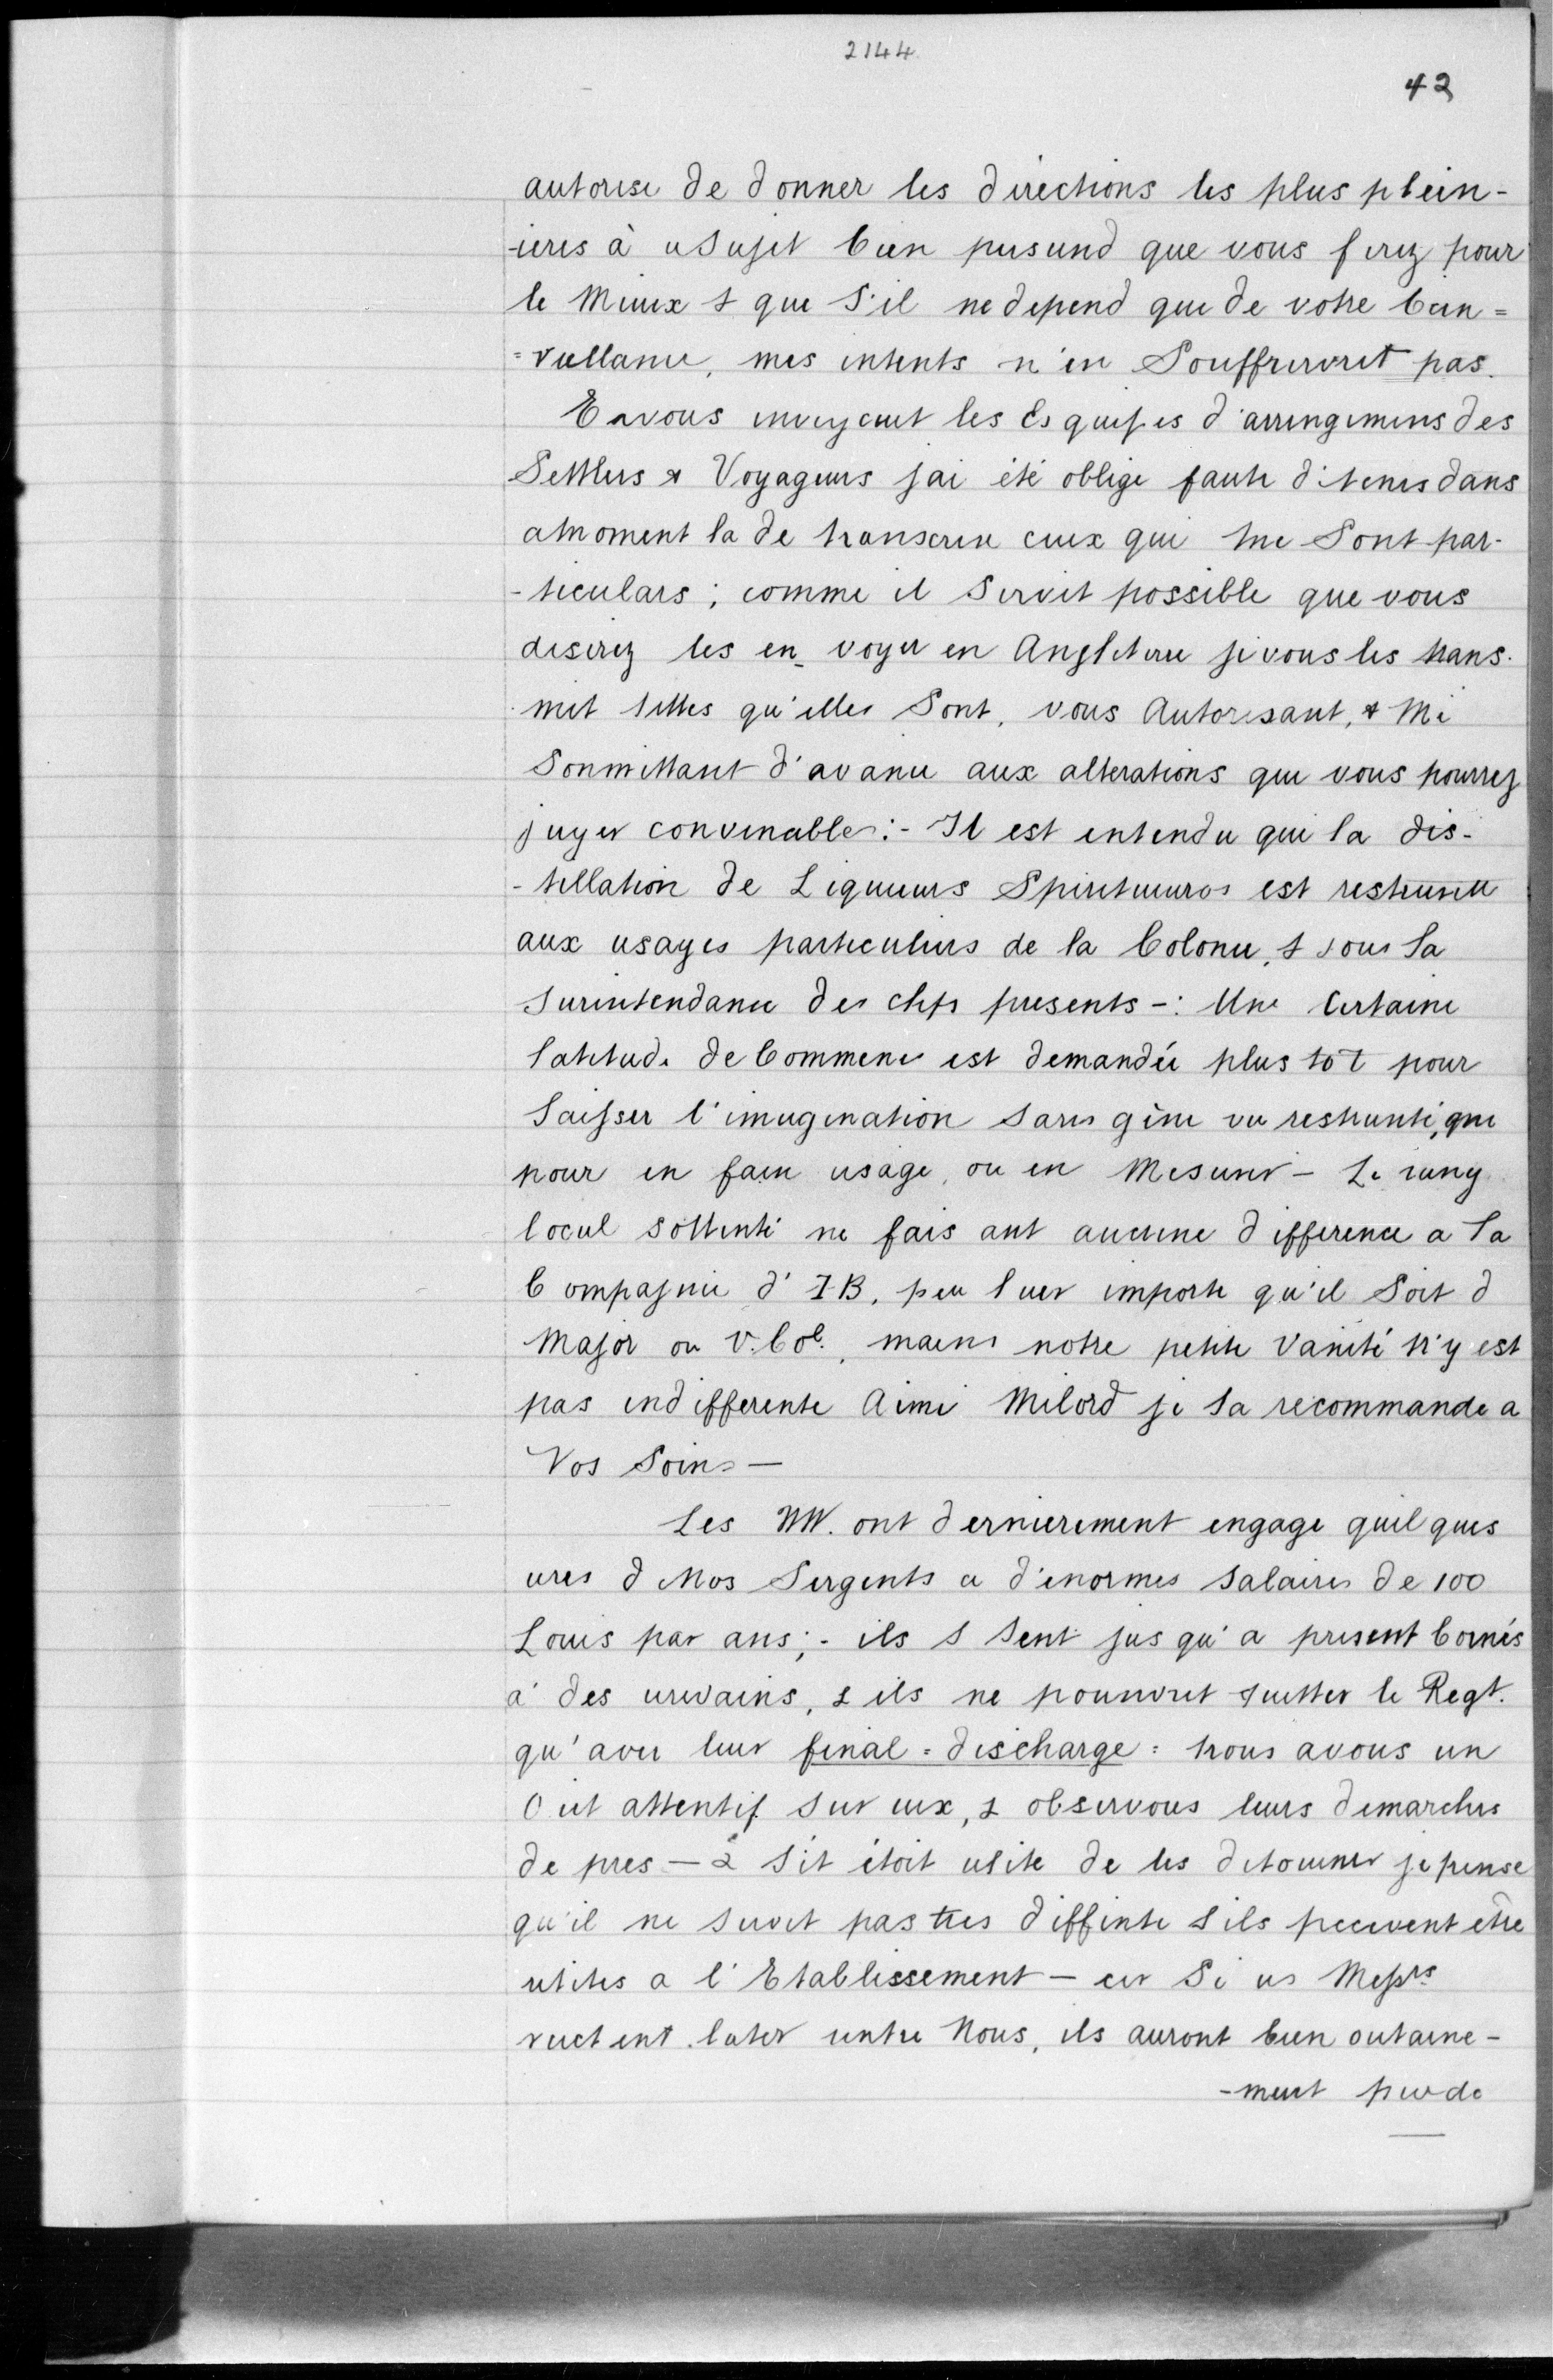 2144
42
autorise de donner les directions les plus plein-
-ieres à u Sujet bien pusund que vous ferez pour
le Mieux & que S'il ne depend que de votre bein=
=vullanu, mes intents n'en Souffrirvret pas.
En vous envoyant les Esquises d'arrengemens des
Settlers & Voyageurs j'ai été oblige faute d'itemes dans
a moment la de transcrire ceux qui me Sont par-
-ticulars; comme il Servit possible que vous
desirez les en_voyer en Angleterre je vous les trans.
.met telles qu'elles Sont, vous Autorisant, & Me
Sonmittant d'avanu aux alterations que vous pourrez
juger convenables:- Il est entendu que la dis-
-tillation de Liqueurs Spiritueuros est restreunte
aux usages particuliers de la Colonie, & sous la
Surintendance des chefs presents-: Une Certaine
latitude de Commence est demandée plus tot pour
laisser l'imagination sans gène vu restrunte, que
pour en faire usage, ou en Mesuser - Le rang
local sollenté ne fais ant aucune difference a la
Compagnie d' I-B, peu luer importe qu'il Soit d
Major ou V. Col., mains notre petite Vanité n'y est
pas indifferente Aimi Milord je la recommande a
Vos Soins —
Les NW. ont dernierement engage quelques
ures d Nos Sergents a d'enormes Salaires de 100
Louis par ans;- ils s sent jus qu'a present bornés
a' des urivains, & ils ne pounvret quitter le Regt.
qu'avec leur final=discharge: nous avous un
Oeil attentif sur eux, & observous leurs demarches
de pres - & s'it étoit utite de les detourner je pense
qu'il ne servit pas tres diffinte s ils peuvent être
utites a l'Etablissement - car Si us Messrs
ructent luter untre Nous, ils auront bien outaine-
-ment per de